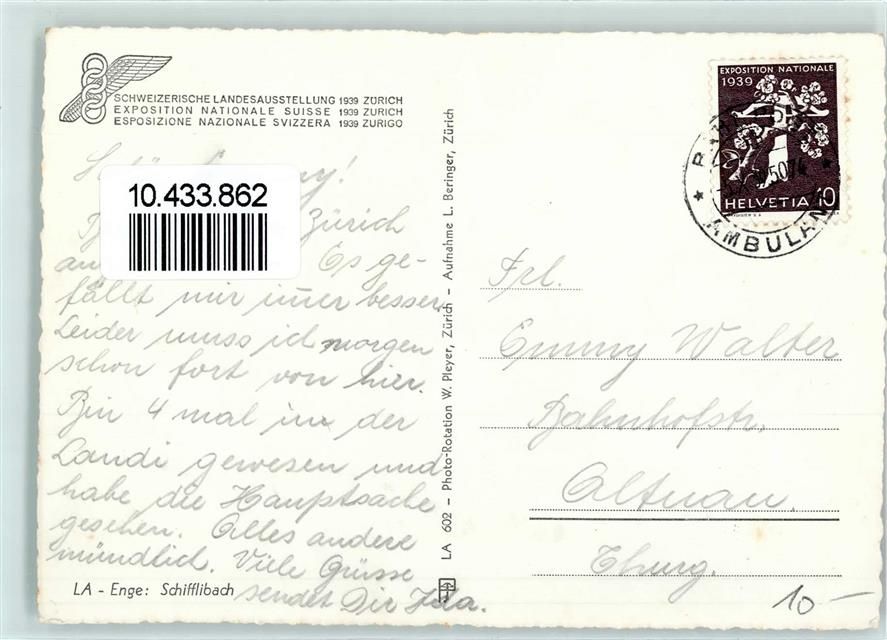 SCHWEIZERISCHE LANDESAUSSTELLUNG 1939 ZÜRICH
EXPOSITION NATIONALE SUISSE 1939 ZURICH
ESPOSIZIONE NAZIONALE SVIZZERA 1939 ZURIGO
10.433.862
Zürich
Es ge-
fällt mir imer besser.
Leider muss ich morgen
schon fort von hier.
Bin 4 mal in der
Landi gewesen und
habe die Hauptsache
gesehen. Alles andere
mündlich. Viele Grüsse
sendet Dir Ida.
LA - Enge: Schifflibach
LA 602 – Photo-Rotation W. Pleyer, Zürich - Aufnahme L. Beringer, Zürich
EXPOSITION NATIONALE
1939
HELVETIA 10
AMBULANT
Frl.
Emmy Walter
Bahnhofstr.
Altnau.
Thurg.
10 –